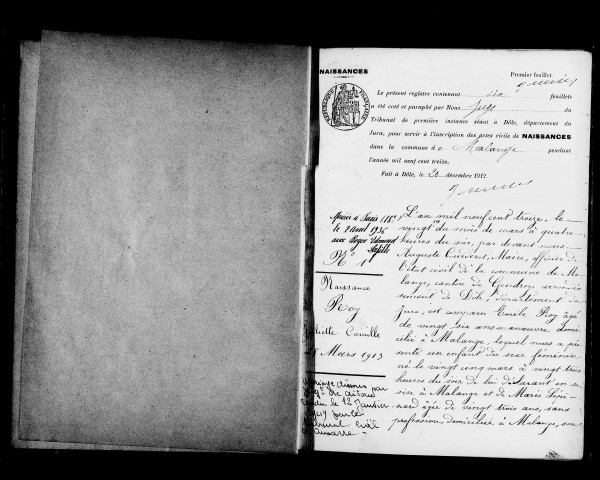 NAISSANCES
Premier feuillet.
Le présent registre contenant six feuillets
a été coté et paraphé par Nous Juge du
Tribunal de première instance séant à Dôle, département du
Jura, pour servir à l'inscription des actes civils de NAISSANCES
dans la commune de Malange pendant
l'année mil neuf cent treize.
Fait à Dôle, le 20 décembre 1912.
RÉPUBLIQUE FRANÇAISE
Marié à Paris (18e)
le 7 avril 1936
avec Roger Edmond
No 1
Naissance
Roy
Juliette Camille
Mars 1913
Mariage dissous par
le 12 Janvier
par le
tribunal Civil
L'an mil neuf cent treize, le
vingt du mois de mars à quatre
heures du soir, par devant nous
Auguste Maire, officier de
l'état civil de la commune de Ma
lange, canton de Gendrey arrondis
sement de Dôle, département du
Jura, est comparu Emile Roy âgé
de vingt six ans manœuvre domi
cilié à Malange, lequel nous a pré
senté un enfant du sexe féminin
né le vingt cinq mars à vingt trois
heures du soir de lui déclarant
à Malange et de Marie Lépi
nard âgée de vingt trois ans, sans
profession, domiciliée à Malange, son